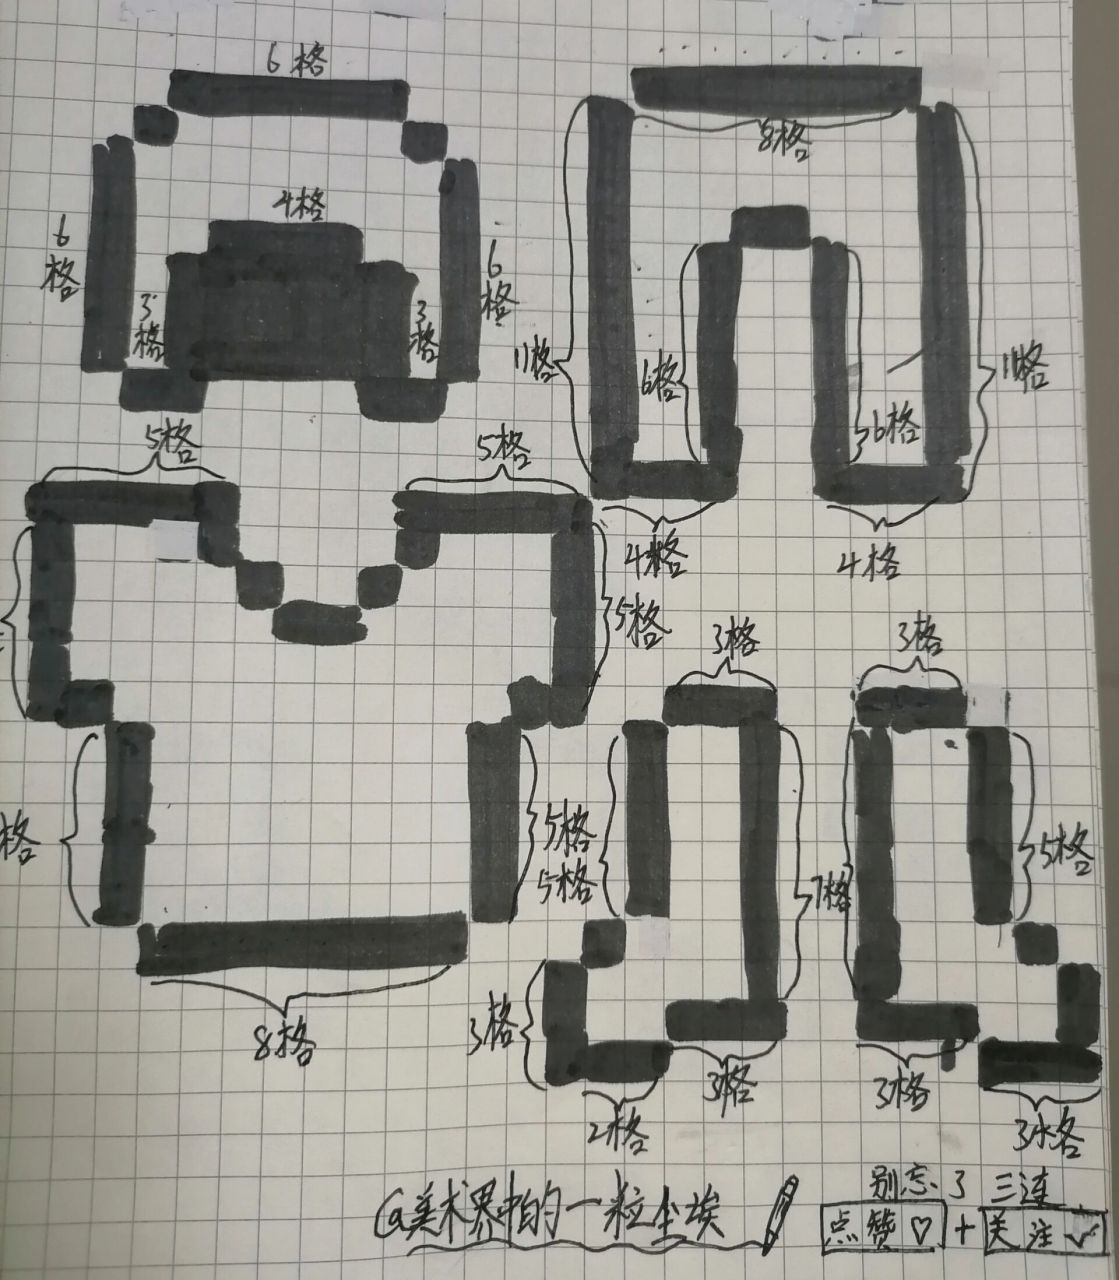 6格
8格
4格
6格
6格
3格
3格
11格
6格
11格
6格
5格
5格
4格
4格
5格
3格
3格
格
5格
5格
7格
5格
3格
8格
3格
3格
2格
3格
别忘了三连
@美术界中的一粒尘埃
点赞♡+关注✓